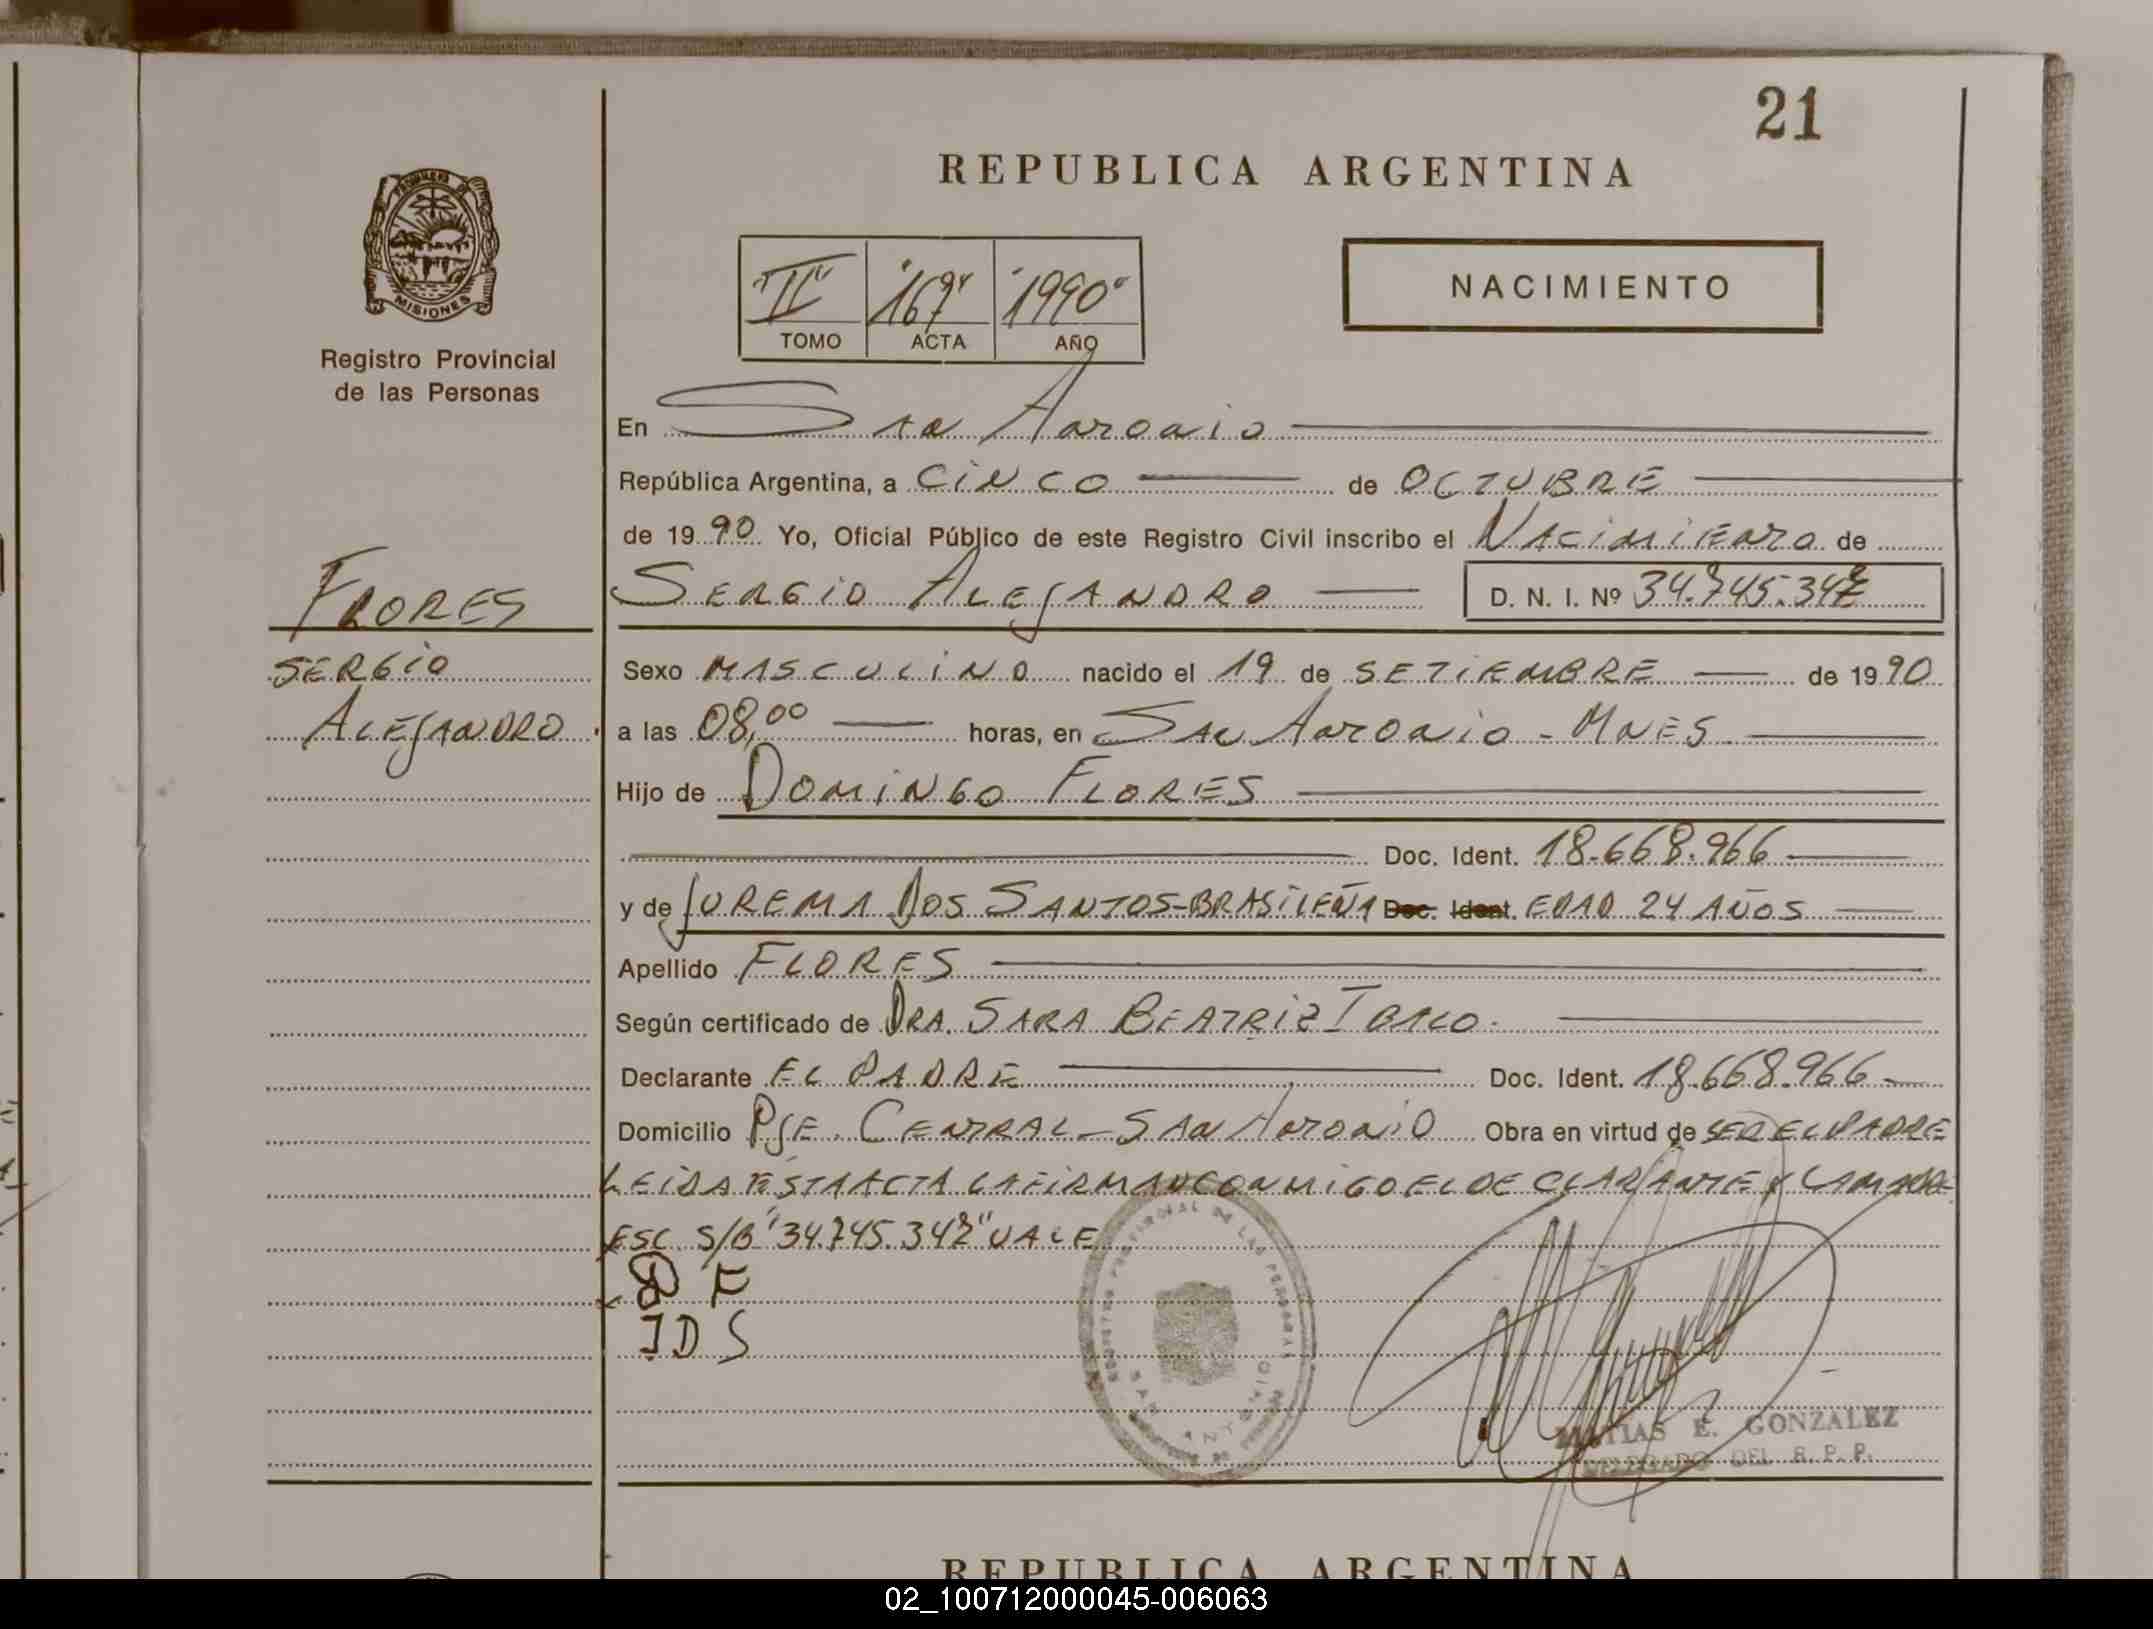 21
REPUBLICA ARGENTINA
PROVINCIA DE
MISIONES
Registro Provincial
de las Personas
"II" "167" "1990"
TOMO ACTA AÑO
NACIMIENTO
En San Antonio
República Argentina, a CINCO de OCTUBRE
de 1990 Yo, Oficial Público de este Registro Civil inscribo el Nacimiento de
FLORES
SERGIO ALEJANDRO D. N. I. Nº 34.745.342
SERGIO
Sexo MASCULINO nacido el 19 de SETIEMBRE de 1990
ALEJANDRO
a las 08,00 horas, en SAN ANTONIO - MNES
Hijo de DOMINGO FLORES
Doc. Ident. 18.668.966
y de JUREMA DOS SANTOS-BRASILEÑA Doc. Ident. EDAD 24 AÑOS
Apellido FLORES
Según certificado de DRA. SARA BEATRIZ
Declarante EL PADRE Doc. Ident. 18.668.966
Domicilio PJE. CENTRAL - SAN ANTONIO Obra en virtud de SER EL PADRE
LEIDA ESTA ACTA LA FIRMAN CONMIGO EL DECLARANTE Y LA MADRE
ESC. S/B "34.745.342" VALE
D F
JDS
REGISTRO PROVINCIAL DE LAS PERSONAS
SAN ANTONIO
MATIAS E. GONZALEZ
DELEGADO DEL R. P. P.
REPUBLICA ARGENTINA
02_100712000045-006063